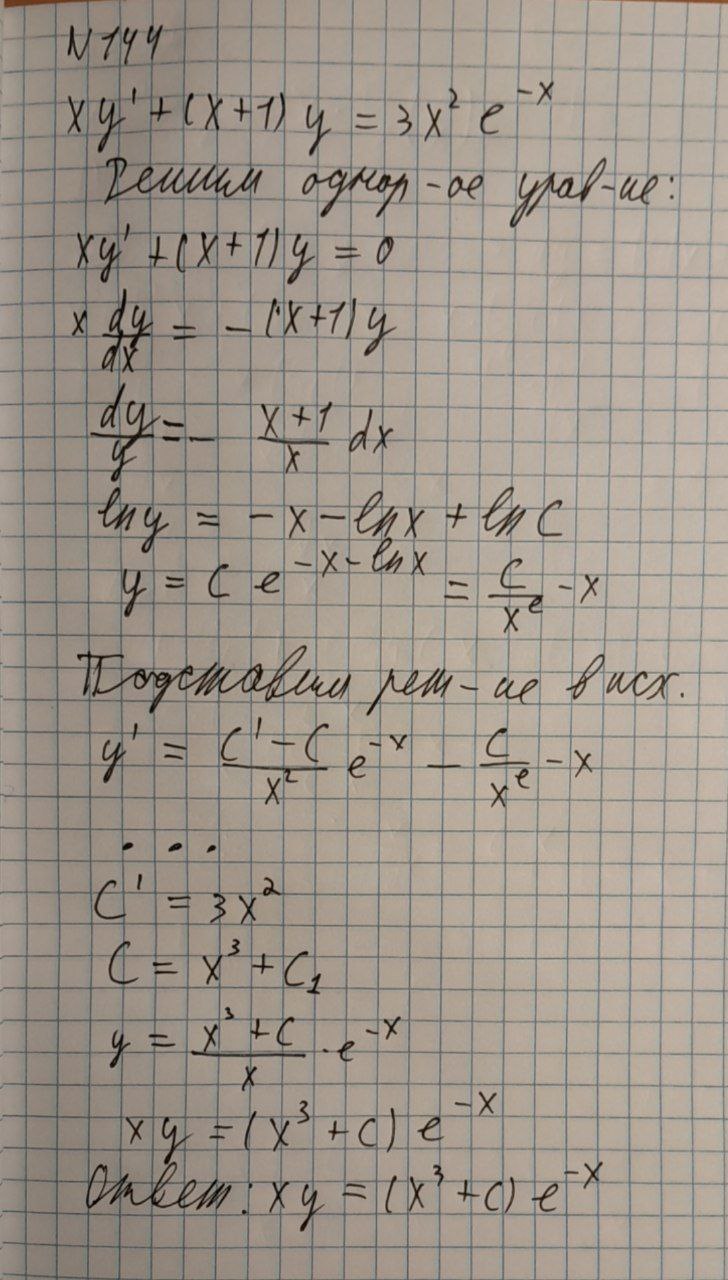 N 144
xy' + (x+1) y = 3x² e^{-x}
Решим однор-ое урав-ие:
xy' + (x+1)y = 0
x dy/dx = - (x+1)y
dy/y = - (x+1)/x dx
ln y = -x - ln x + ln C
y = C e^{-x - ln x} = C/x^e - x
Подставим реш-ие в исх.
y' = (C' - C)/x² e^{-x} - C/x^e - x
. . .
C' = 3x²
C = x³ + C₁
y = (x³ + C)/x · e^{-x}
xy = (x³ + C) e^{-x}
Ответ: xy = (x³ + C) e^{-x}